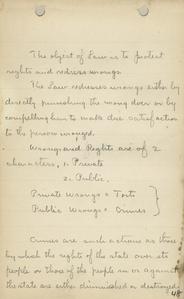 The object of Law is to protect
rights and redress wrongs.
The Law redresses wrongs either by
directly punishing the wrong doer or by
compelling him to make due satisfaction
to the person wronged.
Wrongs and Rights are of 2
characters, 1. Private
2. Public.
Private Wrongs = Torts
Public Wrongs = Crimes
Crimes are such actions as those
by which the rights of the state over its
people or those of the people in or against
the state are either diminished or destroyed